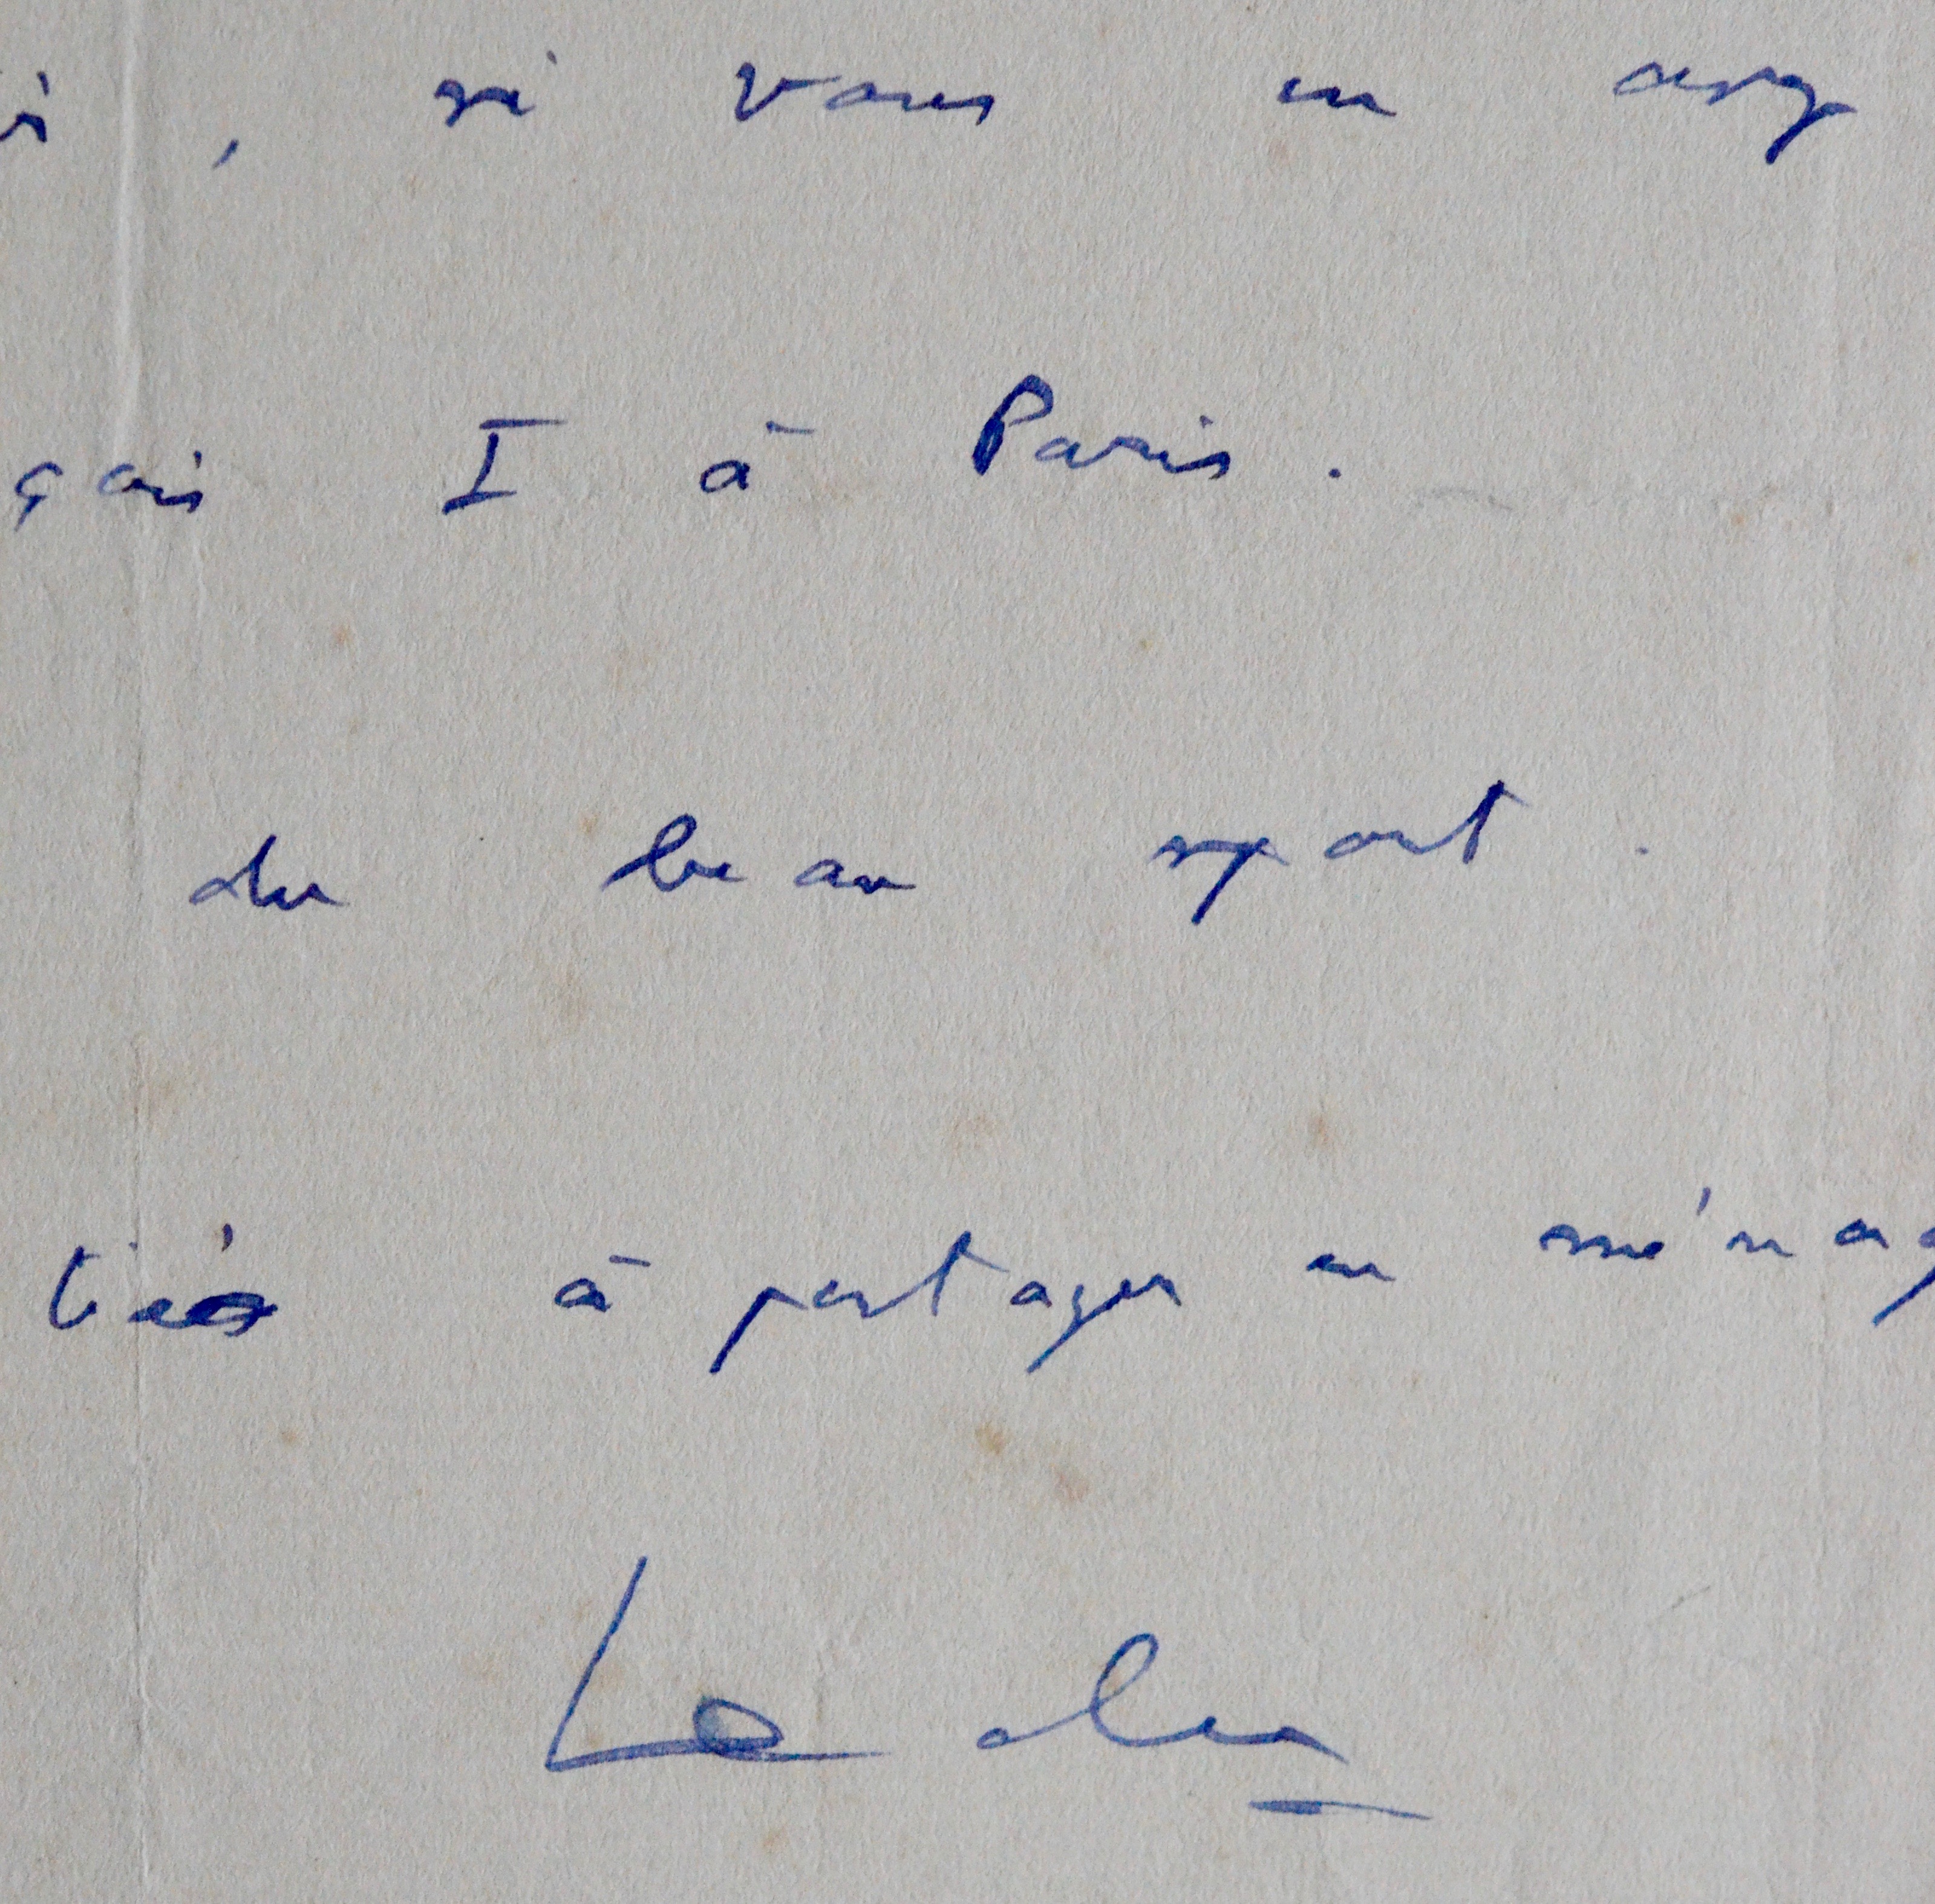 , si vous en avez
çais I à Paris.
du beau sport.
tiés à partager en ménag